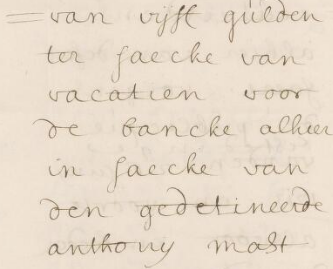 van vijff gulden
ter saecke van
vacatien voor
de bancke alhier
in saecke van
den gedetineerde
anthony mast